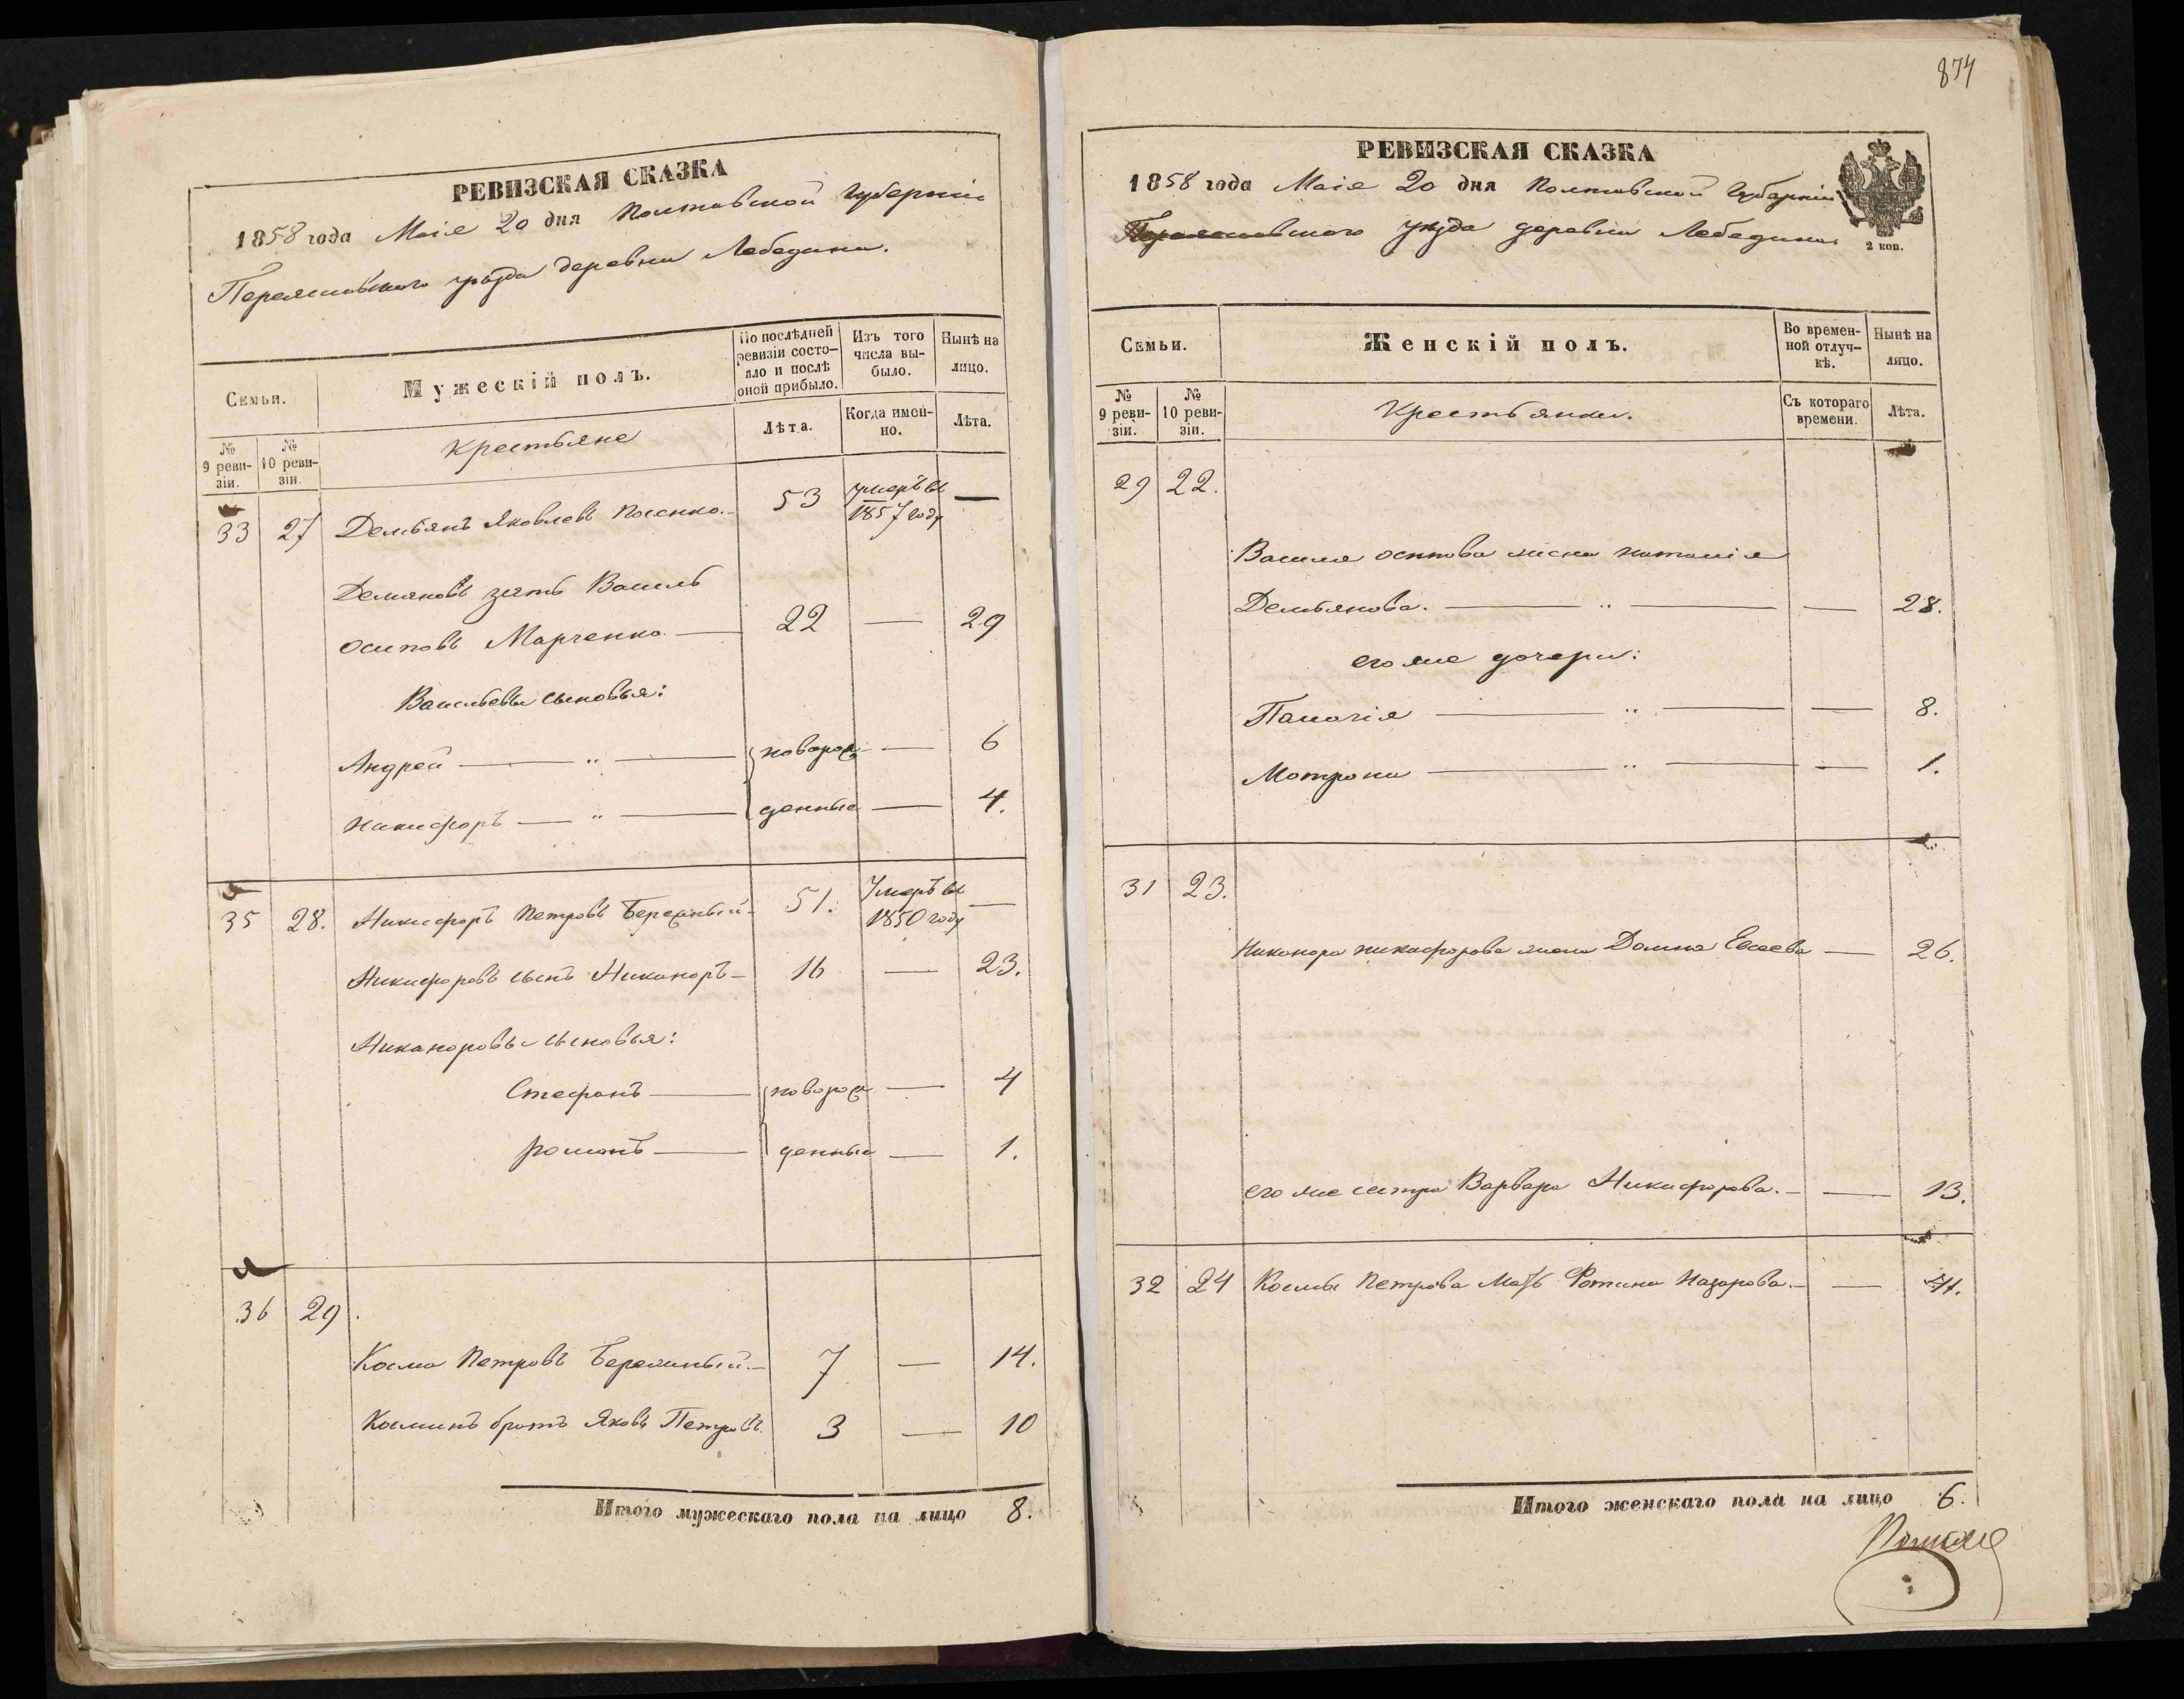 РЕВИЗСКАЯ СКАЗКА
1858 года Маія 20 дня Полтавской губерніи
Переяславского уѣзда деревни Лебедина.
Семьи.
Мужескій полъ.
По послѣдней ревизіи состояло и послѣ оной прибыло.
Изъ того числа выбыло.
Нынѣ на лицо.
№ 9 ревизіи.
№ 10 ревизіи.
Крестьяне
Лѣта.
Когда имен-
но.
Лѣта.
33 27 Демьянъ Яковлевъ 53 умеръ въ 1857 году —
Демяновъ зять Василь
осиповъ Марченко — 22 — 29
Васильевы сыновья:
Андрей — " — новорож — 6
Никифоръ — " — денные — 4.
35 28. Никифоръ Петровъ Бережный 51. Умеръ въ 1850 году —
Никифоровъ сынъ Никаноръ — 16 — 23.
Никаноровы сыновья:
Стефанъ — новорож — 4
романъ — денные — 1.
36 29.
Косма Петровъ Бережный. — 7 — 14.
Косминъ братъ Яковъ Петровъ 3 — 10
Итого мужескаго пола на лицо 8.
874
РЕВИЗСКАЯ СКАЗКА
1858 года Маія 20 дня Полтавской Губерніи
Переяславского уѣзда деревни Лебедина
2 коп.
Семьи.
Женскій полъ.
Во времен-
ной отлуч-
кѣ.
Нынѣ на
лицо.
№ 9 реви-
зіи.
№ 10 реви-
зіи.
Крестьянки.
Съ котораго
времени.
Лѣта.
29 22.
Василя осипова жена наталія
Демьянова. — " — — 28.
его же дочери:
Палагія — " — — 8.
Мотрона — " — — 1.
31 23.
Никанора никифорова жена Домна Евсеева — 26.
его же сестра Варвара Никифорова. — — 13.
32 24 Космы Петрова Мать Фотина Назарова. — — 41.
Итого женскаго пола на лицо 6.